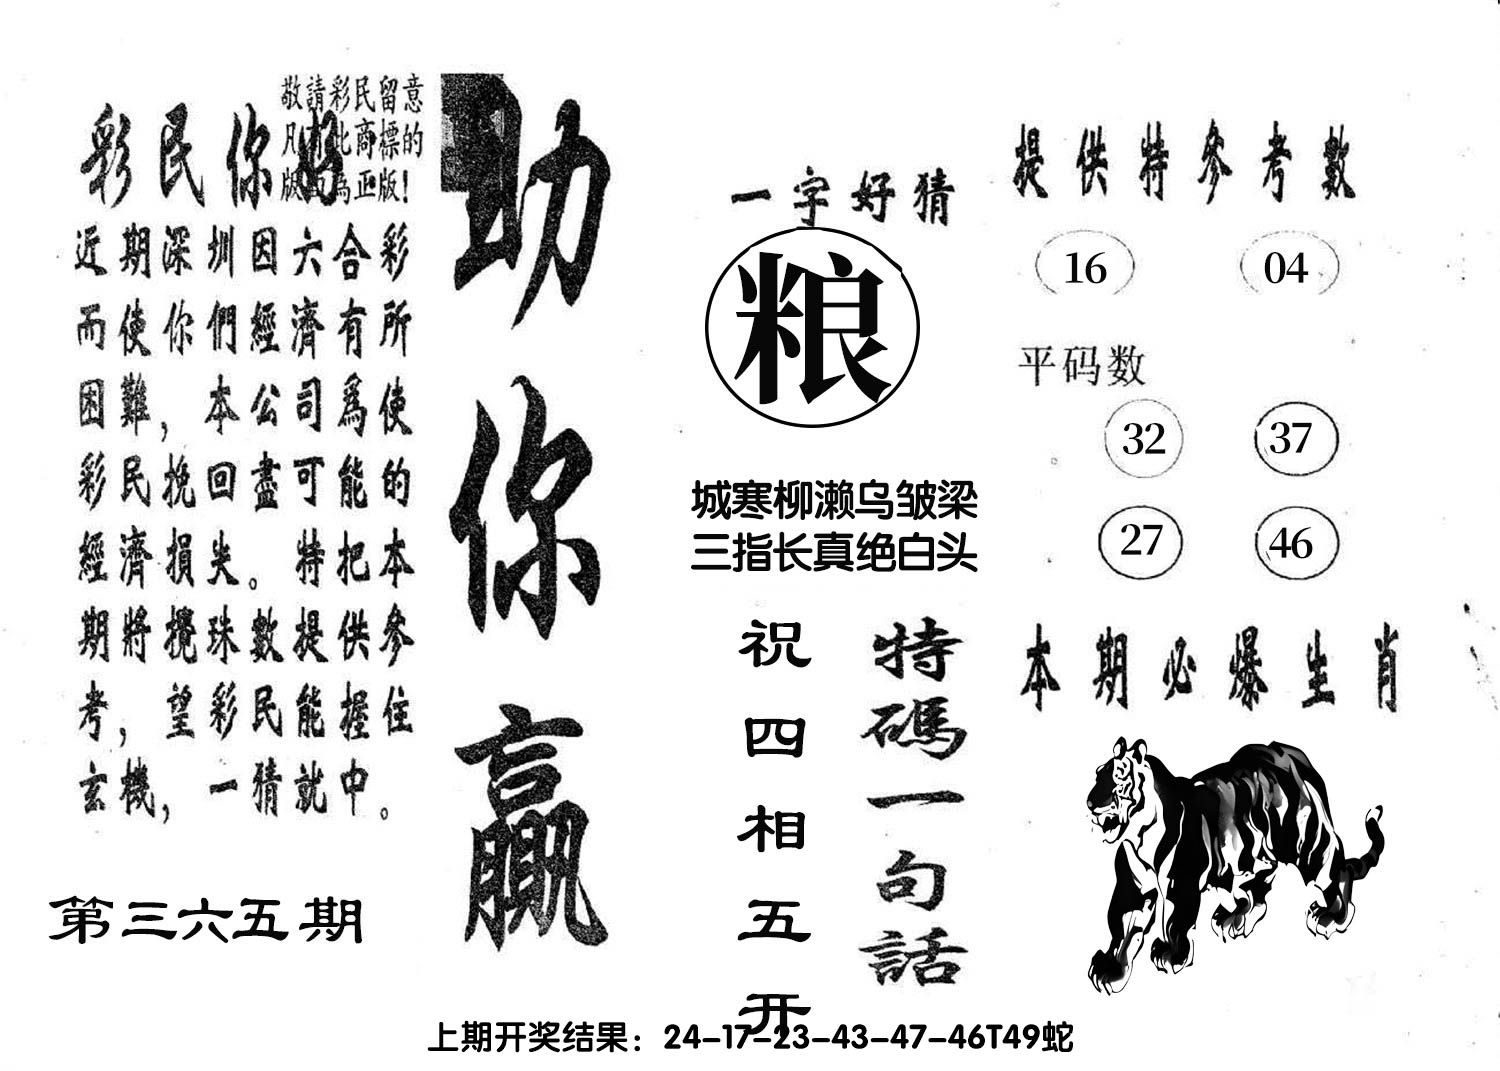 敬請彩民留意
凡有此商標的
版面為正版！
彩民你好
近期深圳因六合彩
而使你們經濟有所
困難，本公司爲使
彩民挽回盡可能的
經濟損失。特把本
期將攪珠數提供參
考，望彩民能握住
玄機，一猜就中。
第三六五期
助你贏
一字好猜
粮
城寒柳濑乌皱梁
三指长真绝白头
特碼一句話
祝四相五开
提供特參考數
16 04
平码数
32 37
27 46
本期必爆生肖
上期开奖结果：24-17-23-43-47-46T49蛇